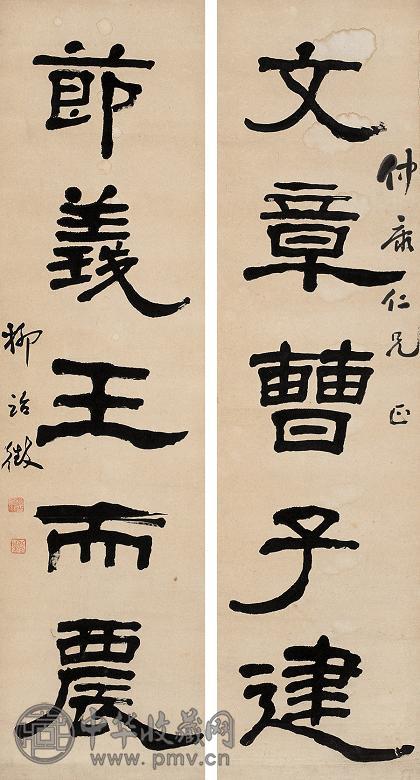 仲康仁兄正
文章曹子建
節義王而農
柳詒徵
中华收藏网
www.pmv.cn